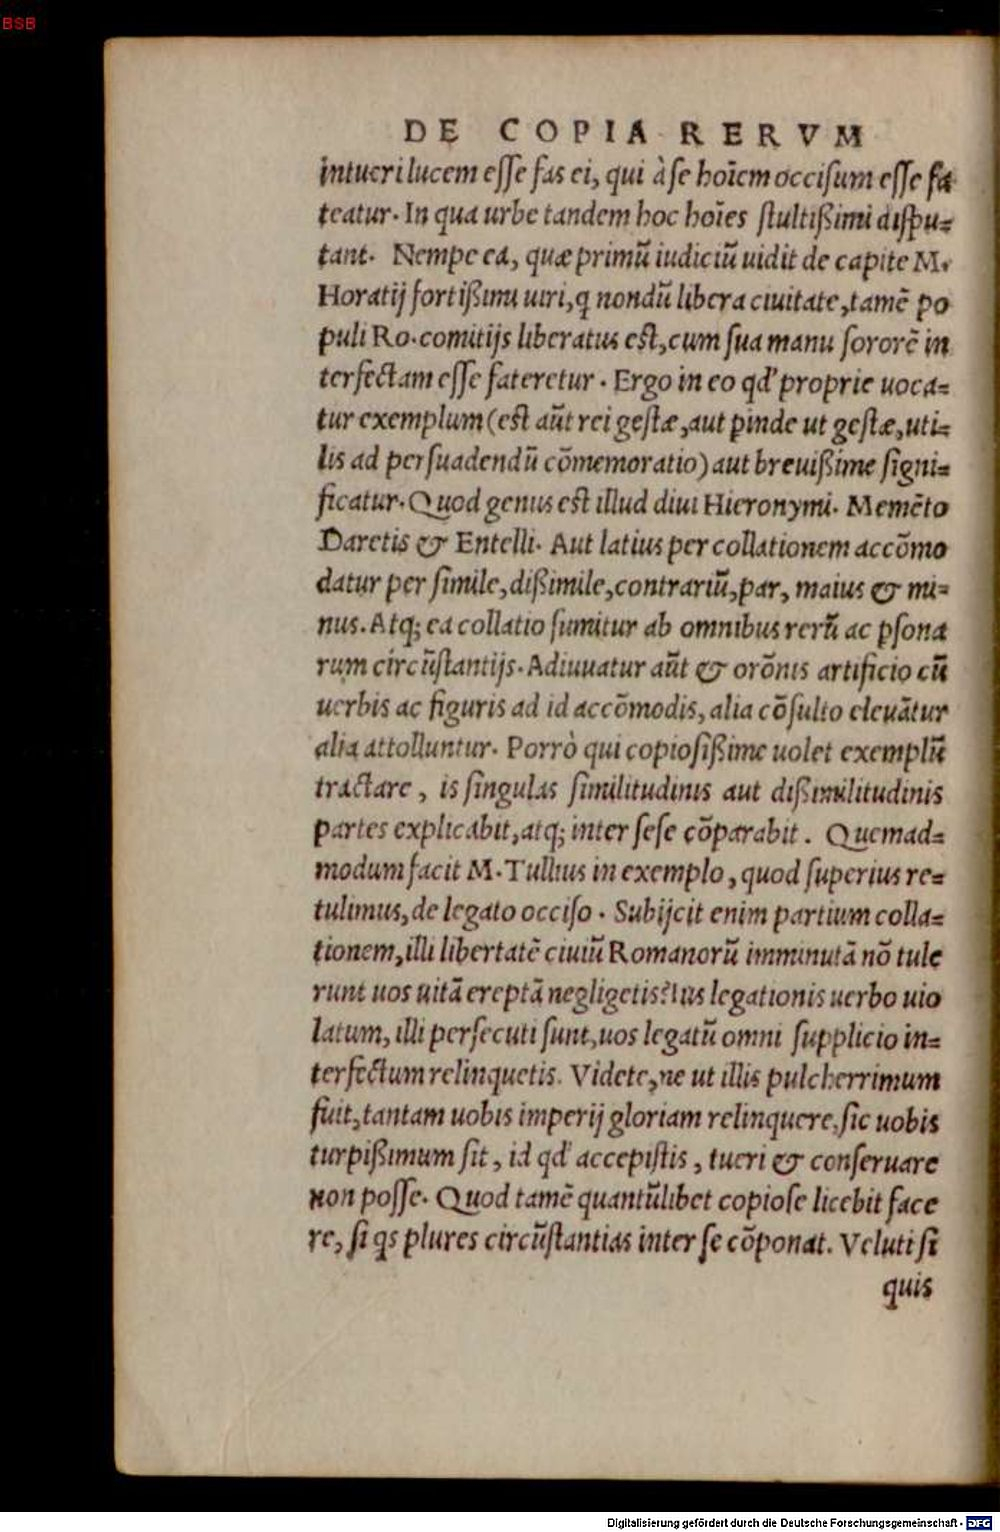 BSB
DE COPIA RERVM
intueri lucem esse fas ei, qui à se hoīem occisum esse fa
teatur. In qua urbe tandem hoc hoīes stultißimi dispu=
tant. Nempe ea, quæ primū iudiciū uidit de capite M.
Horatij fortißimi uiri, q nondū libera ciuitate, tamē po
puli Ro. comitijs liberatus est, cum sua manu sororē in
terfectam esse fateretur. Ergo in eo qd' proprie uoca=
tur exemplum (est aūt rei gestæ, aut ꝑinde ut gestæ, uti=
lis ad persuadendū cōmemoratio) aut breuißime signi=
ficatur. Quod genus est illud diui Hieronymi. Memēto
Daretis & Entelli. Aut latius per collationem accōmo
datur per simile, dißimile, contrariū, par, maius & mi=
nus. Atq; ea collatio sumitur ab omnibus rerū ac ꝑsona
rum circūstantijs. Adiuuatur aūt & orōnis artificio cū
uerbis ac figuris ad id accōmodis, alia cōsulto eleuātur
alia attolluntur. Porrò qui copiosißime uolet exemplū
tractare, is singulas similitudinis aut dißimilitudinis
partes explicabit, atq; inter sese cōparabit. Quemad=
modum facit M. Tullius in exemplo, quod superius re=
tulimus, de legato occiso. Subijcit enim partium colla=
tionem, illi libertatē ciuiū Romanorū imminutā nō tule
runt uos uitā ereptā negligetis? Ius legationis uerbo uio
latum, illi persecuti sunt, uos legatū omni supplicio in=
terfectum relinquetis. Videte, ne ut illis pulcherrimum
fuit, tantam uobis imperij gloriam relinquere, sic uobis
turpißimum sit, id qd' accepistis, tueri & conseruare
non posse. Quod tamē quantūlibet copiose licebit face
re, si qs plures circūstantias inter se cōponat. Veluti si
quis
Digitalisierung gefördert durch die Deutsche Forschungsgemeinschaft - DFG